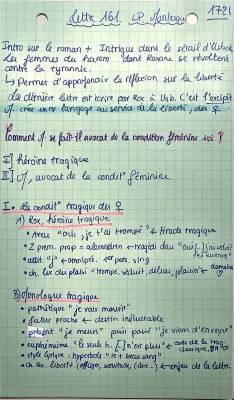 Lettre 161 LP Montesq 1721
Intro sur le roman + Intrigue dans le sérail d'Usbek
Les femmes du harem dont Roxane se révoltent
contre la tyrannie.
↳ Permet d'approfondir la réflexion sur la liberté
La dernière lettre est écrire par Rox à Usb. C'est l'excipit
crée un langage au service de la liberté, des ♀
Comment se fait-il avocat de la condition féminine ici ?
I] héroïne tragique
II] avocat de la condit° féminine
I. La condit° tragique des ♀
A) Rox, héroïne tragique
• Aveu "oui, je t'ai trompé" ← tirade tragique
• 2 prem. prop = alexandrin → tragédi dans "oui [...] j'ai séduit
tes eunuq"
• allit° "j" = omnipré. 1er pers. sing
• ch. lex du plaisir "trompé, séduit, délices, plaisir" ←
B) Monologue tragique
• pathétique "je vais mourir"
• futur proche ← destin inéluctable
• présent "je meurs" puis passé "je viens d'envoyer"
• euphémisme "le seul h. [...] n'est plus" ← code de la trag.
classique
• style lyrique : hyperbole "le + beau sang"
• ch. lex. liberté (affligé, servitude, libre...) ← enjeu de la lettre